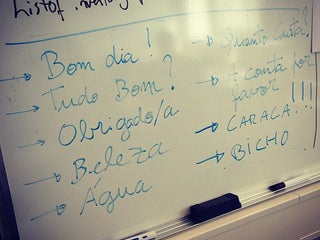 → Bom dia!
→ Tudo Bom?
→ Obrigado/a
→ Beleza
→ Água
→ Quanto Custa?
→ A conta por
favor!!!
→ CARACA!
→ BICHO